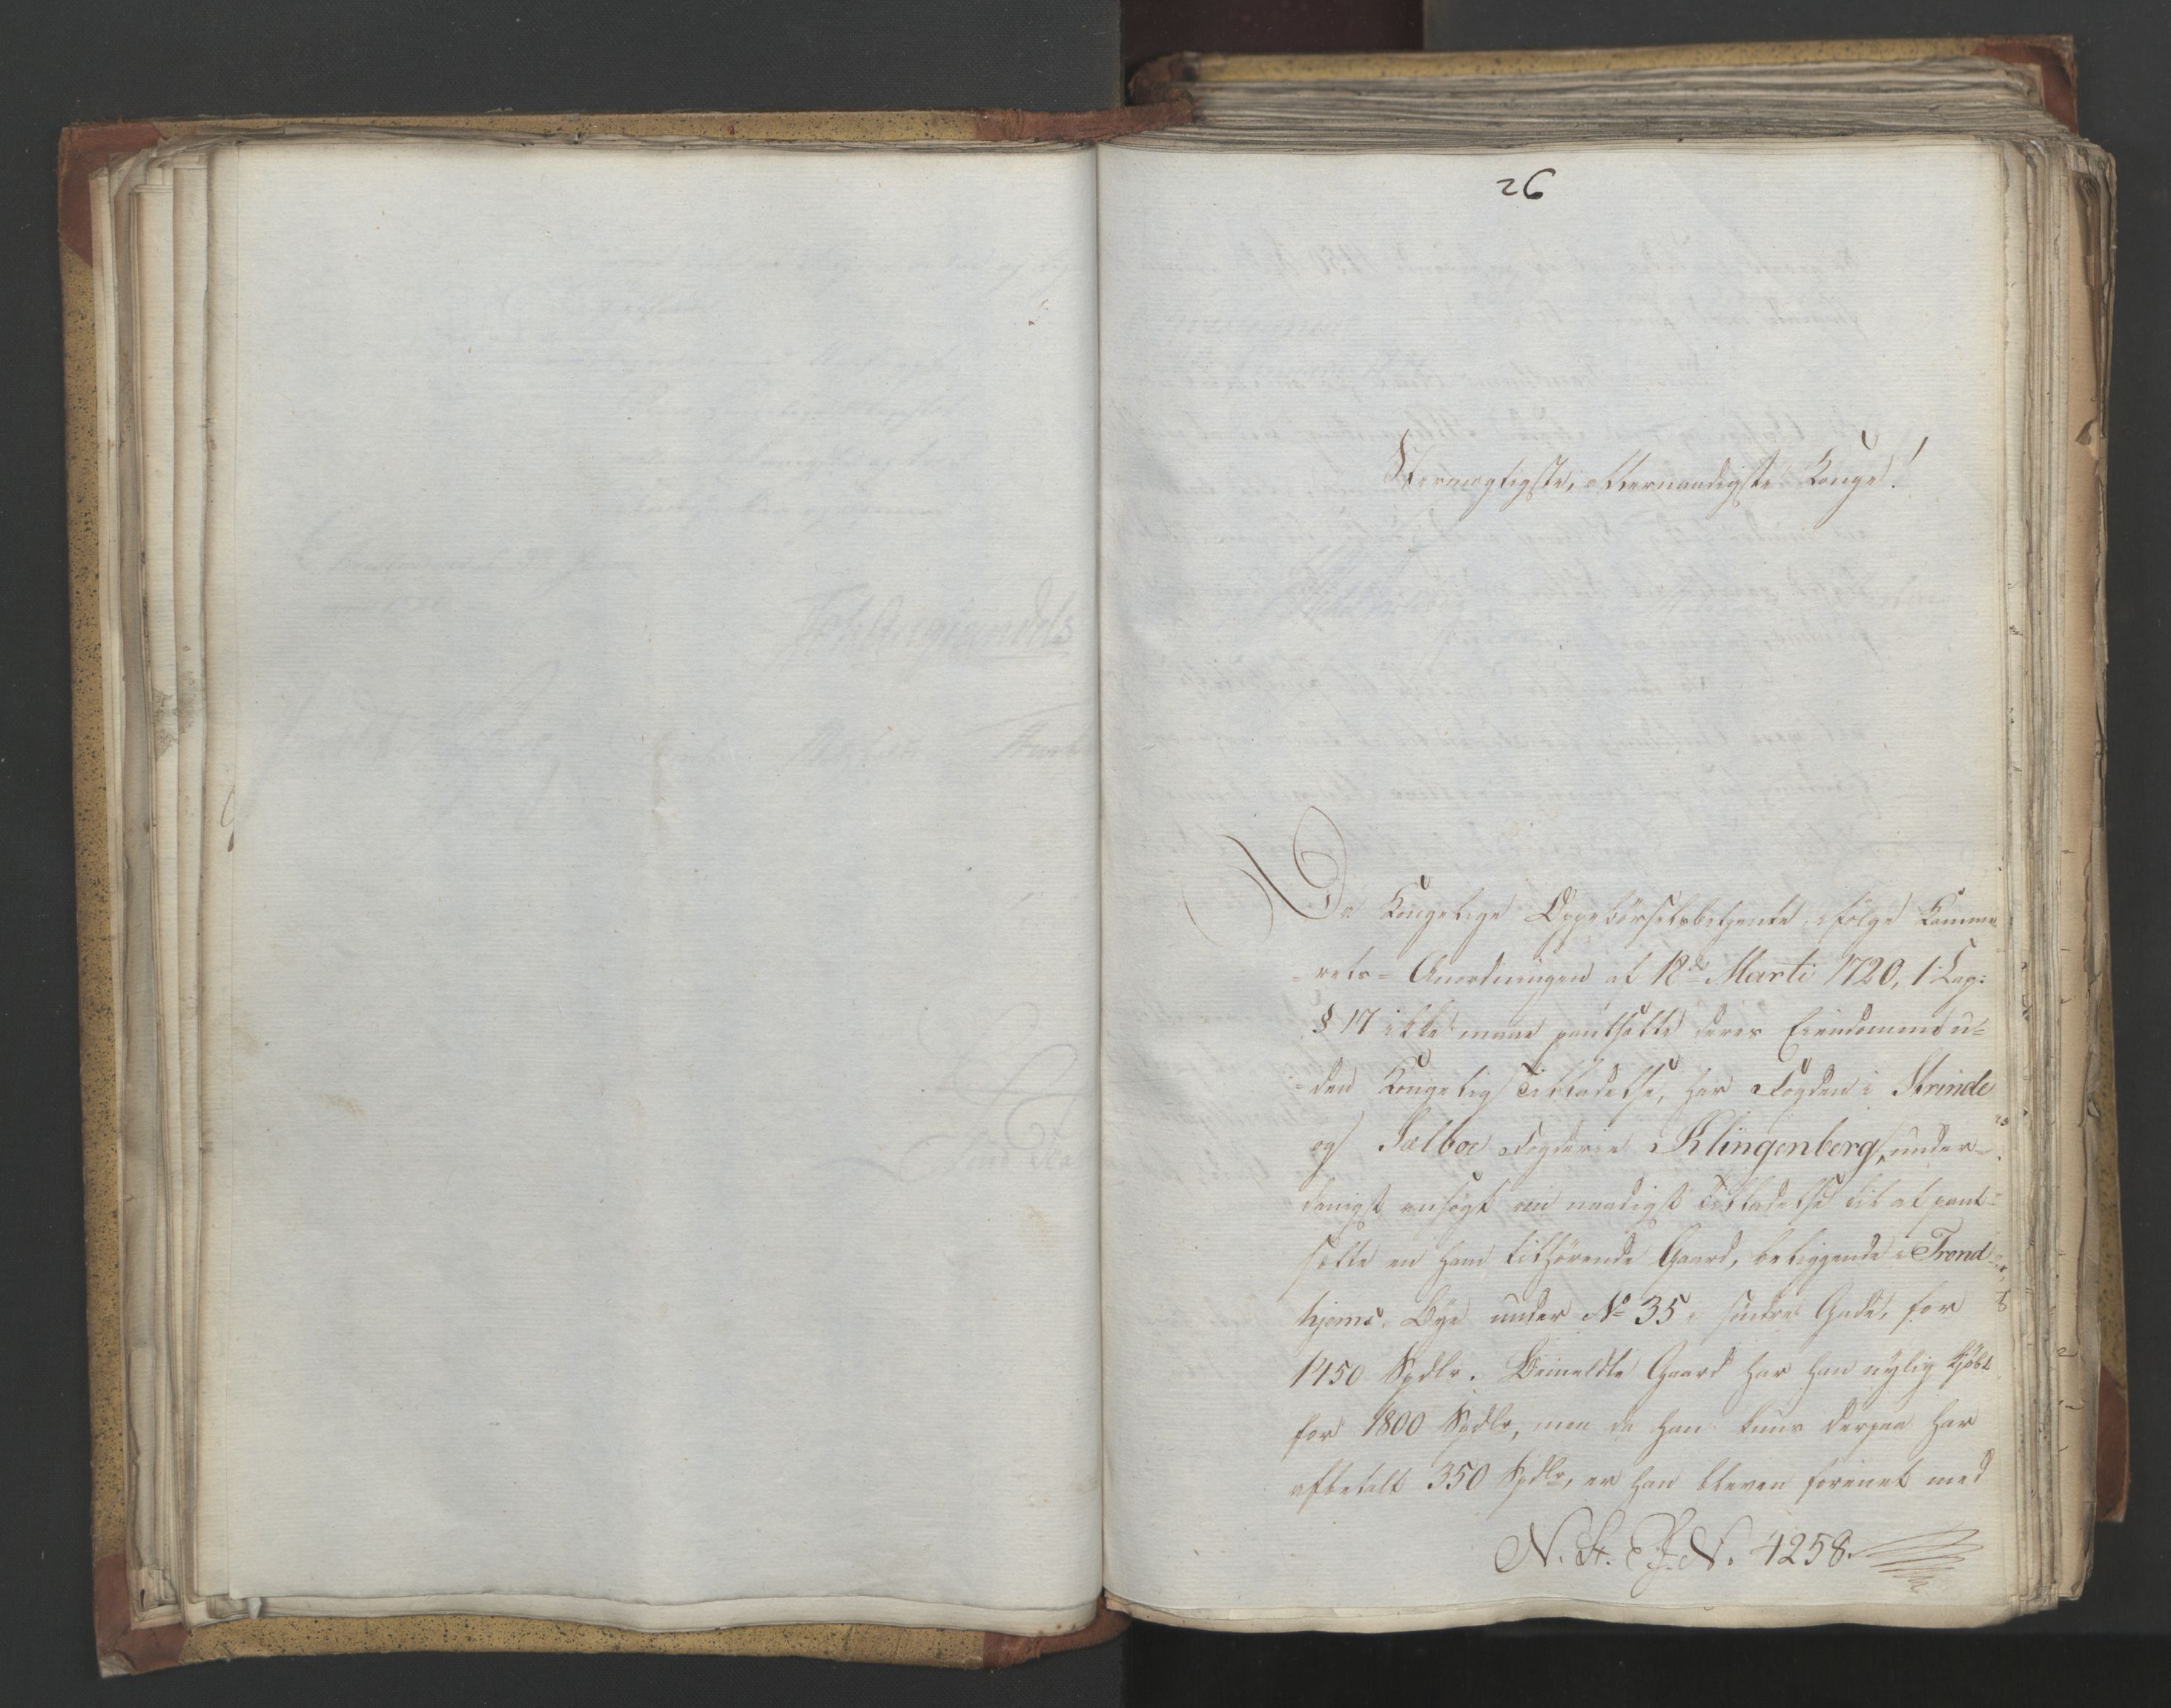 26
Stormægtigste, Allernaadigste Konge!
Da Kongelige Oppebørselsbetjente ifølge Kamme
rets-Anordningen af 18de Marti 1720, 1 Cap:
§ 17 ikke maae pantsætte deres Eiendomme u-
den Kongelig Tilladelse, har Fogden i Strinde
og Sælboe Fogderie Klingenberg, under-
danigst ansøgt om naadigst Tilladelse til at pant-
sætte en ham tilhørende Gaard, beliggende i Trond-
hjems Bye under No 35 i søndre Gade, for
1450 Spdlr. Bemeldte Gaard har han nylig kjøbt
for 1800 Spdlr, men da han kuns derpaa har
afbetalt 350 Spdlr, er han bleven forenet med
N. St. E. J. N. 4258.